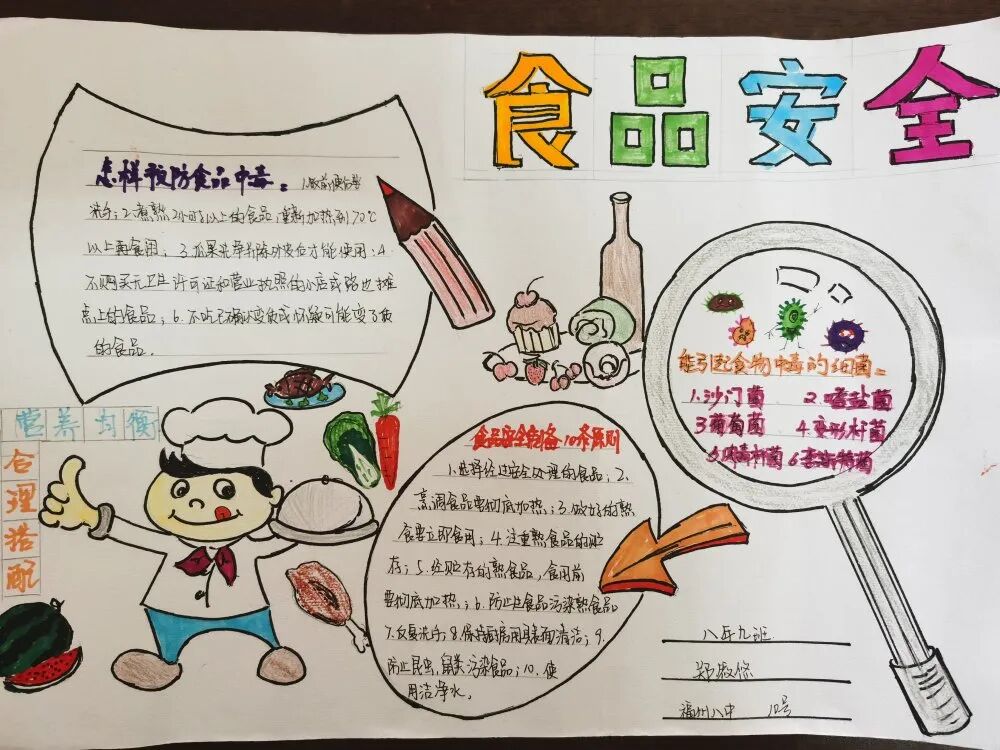 食品安全
怎样预防食品中毒：1.饭前便后要
洗手；2.煮熟2小时以上的食品，重新加热到70℃
以上再食用；3.瓜果洗净并除外皮后才能使用；4.
不购买无卫生许可证和营业执照的小店或路边摊
点上的食品；6.不吃已确认变质或怀疑可能变了质
的食品。
营养均衡
合理搭配
能引起食物中毒的细菌：
1.沙门菌 2.嗜盐菌
3葡萄菌 4.变形杆菌
5.肉毒杆菌 6
食品安全 10条原则
1.选择经过安全处理的食品；2.
烹调食品要彻底加热；3.做好的熟
食要立即食用；4.注重熟食品的贮
存；5.经贮存的熟食品，食用前
要彻底加热；6.防止生食品污染熟食品
7.反复洗手；8.保持厨房用具表面清洁；9.
防止昆虫，鼠类污染食品；10、使
用洁净水。
八年九班
郑
福州八中 12号